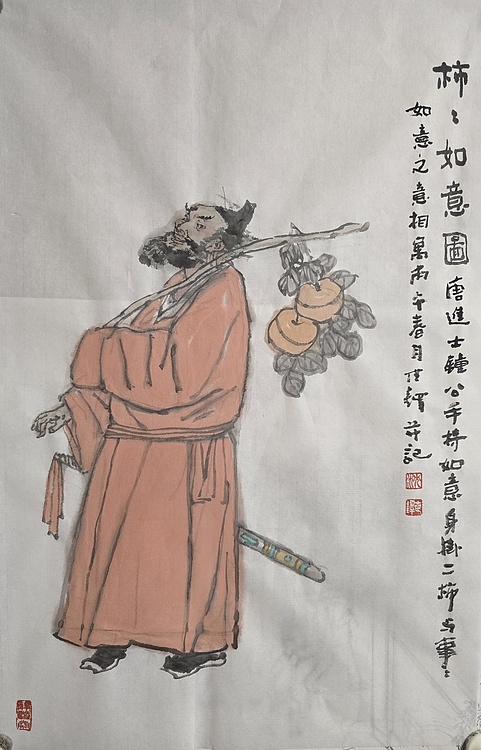 柿〻如意圖唐進士鐘公手持如意身掛二柿与事〻
如意之意相寓丙午春月記